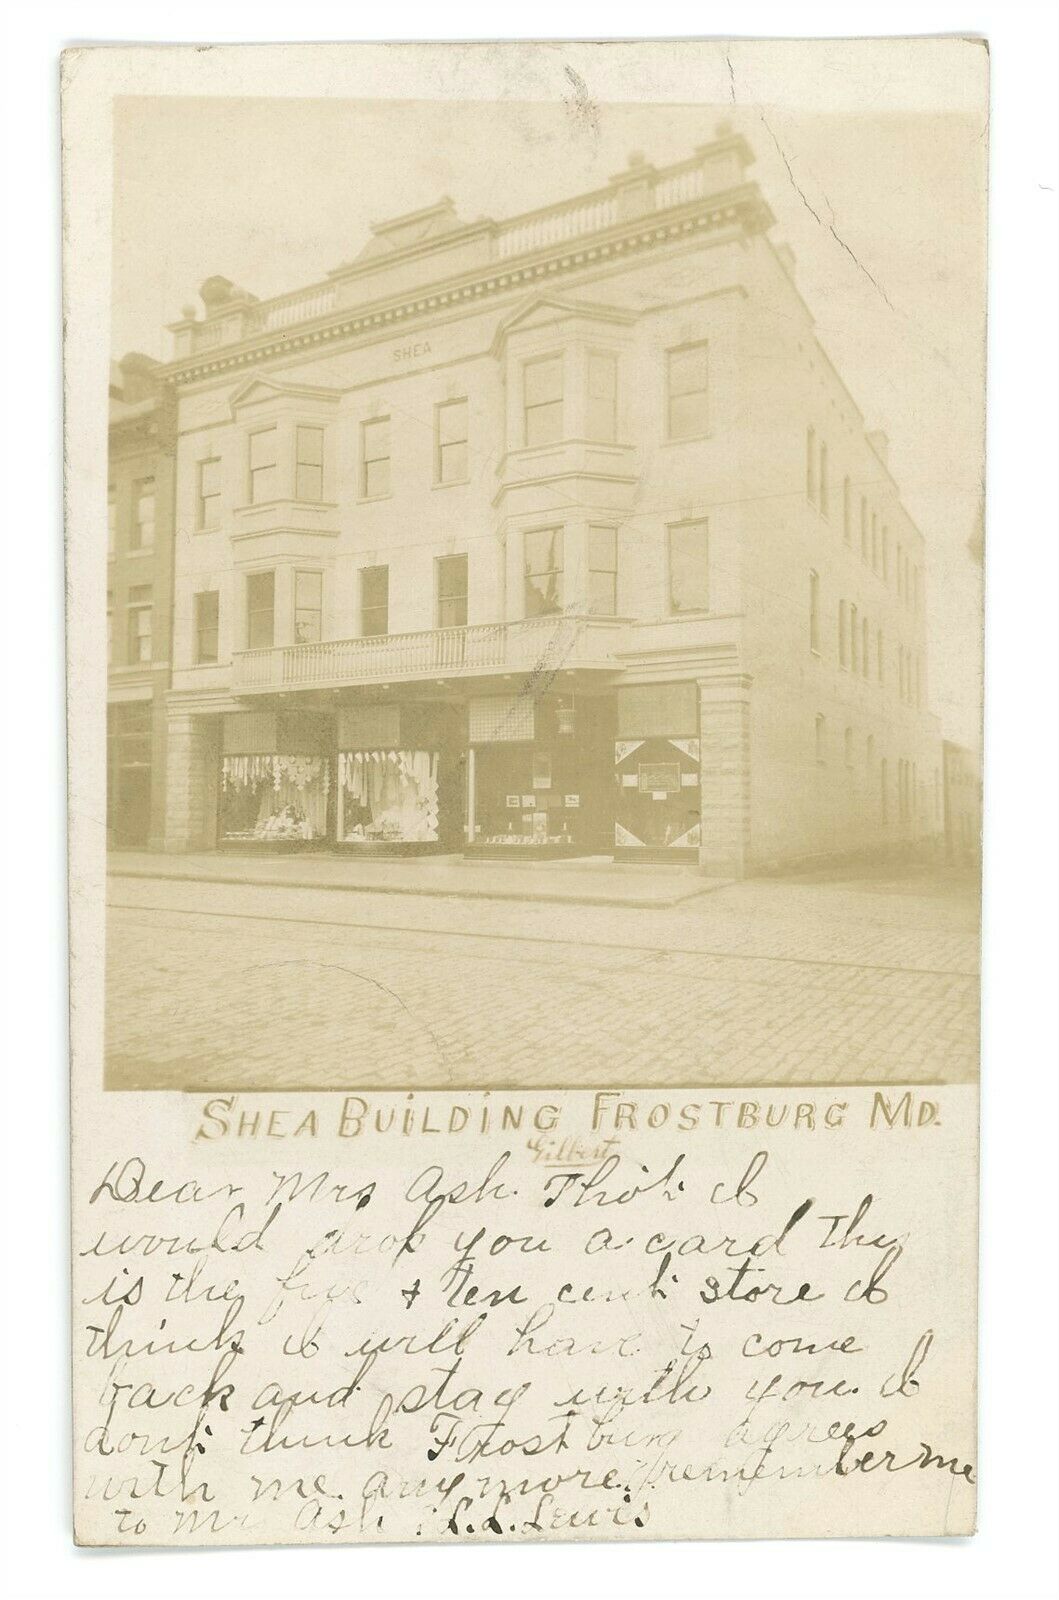 SHEA
SHEA BUILDING FROSTBURG MD.
Gilbert
Dear Mrs Ash. Thot I
would drop you a card this
is the five & ten cent store I
think I will have to come
back and stay with you. I
dont think Frostburg agrees
with me any more. remember me
to Mr Ash L. L. Lewis